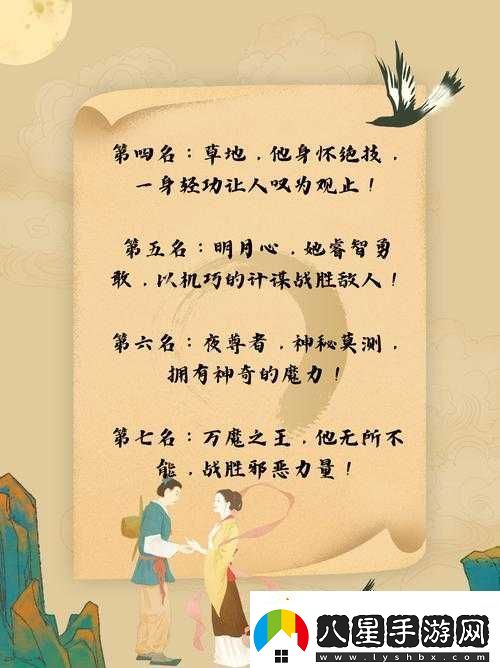 第四名：草地，他身怀绝技，
一身轻功让人叹为观止！
第五名：明月心，她睿智勇
敢，以机巧的计谋战胜敌人！
第六名：夜尊者，神秘莫测，
拥有神奇的魔力！
第七名：万魔之王，他无所不
能，战胜邪恶力量！
八星手游网
www.lyshbx.com